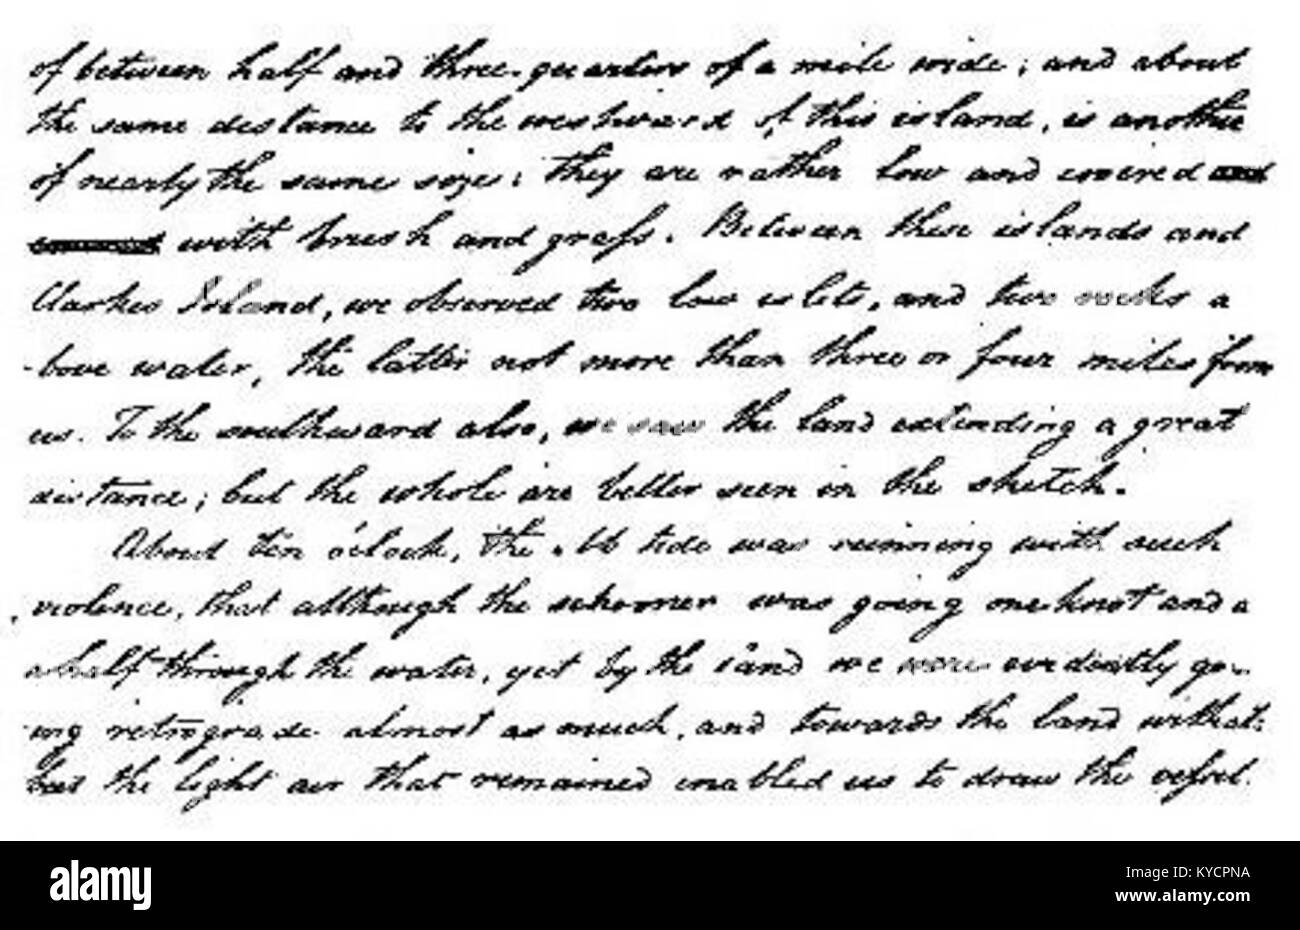 of between half and three-quarters of a mile wide; and about
the same distance to the westward of this island, is another
of nearly the same size; they are rather low and covered and
with brush and grass. Between these islands and
Clarkes Island, we observed two low islets, and two rocks a
-bove water, the latter not more than three or four miles from
us. To the southward also, we saw the land extending a great
distance; but the whole are better seen in the sketch.
About ten o'clock, the ebb tide was running with such
violence, that although the schooner was going one knot and a
a half through the water, yet by the land we were evidently go-
-ing retrograde almost as much, and towards the land withal:
but the light air that remained enabled us to draw the vessel
alamy
Image ID: KYCPNA
www.alamy.com